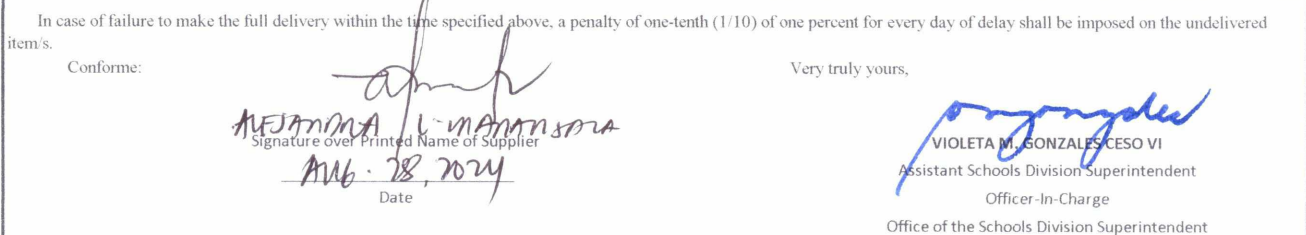 In case of failure to make the full delivery within the time specified above, a penalty of one-tenth (1/10) of one percent for every day of delay shall be imposed on the undelivered
item/s.
Conforme:
Very truly yours,
ALEJANDRA L. MANANSALA
Signature over Printed Name of Supplier
AUG. 28, 2024
Date
VIOLETA M. GONZALES CESO VI
Assistant Schools Division Superintendent
Officer-In-Charge
Office of the Schools Division Superintendent